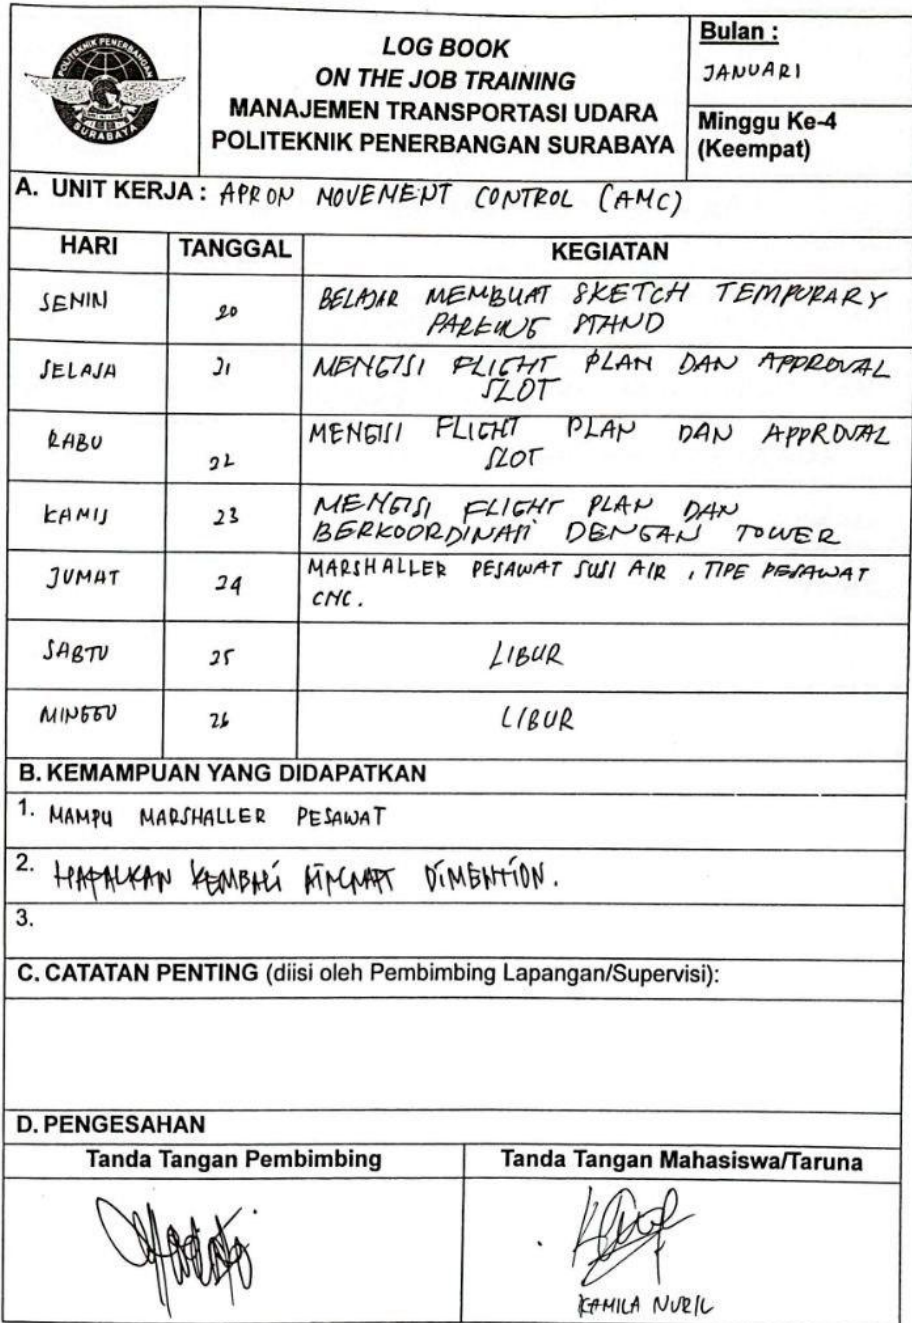 POLITEKNIK PENERBANGAN
SURABAYA
LOG BOOK
ON THE JOB TRAINING
MANAJEMEN TRANSPORTASI UDARA
POLITEKNIK PENERBANGAN SURABAYA
Bulan :
JANUARI
Minggu Ke-4
(Keempat)
A. UNIT KERJA : APRON MOVEMENT CONTROL (AMC)
HARI TANGGAL KEGIATAN
SENIN 20 BELAJAR MEMBUAT SKETCH TEMPORARY
PARKING STAND
SELASA 21 MENGISI FLIGHT PLAN DAN APPROVAL
SLOT
RABU 22 MENGISI FLIGHT PLAN DAN APPROVAL
SLOT
KAMIS 23 MENGISI FLIGHT PLAN DAN
BERKOORDINASI DENGAN TOWER
JUMAT 24 MARSHALLER PESAWAT SUSI AIR , TIPE PESAWAT
CNC.
SABTU 25 LIBUR
MINGGU 26 LIBUR
B. KEMAMPUAN YANG DIDAPATKAN
1. MAMPU MARSHALLER PESAWAT
2. HAFALKAN KEMBALI AIRCRAFT DIMENTION.
3.
C. CATATAN PENTING (diisi oleh Pembimbing Lapangan/Supervisi):
D. PENGESAHAN
Tanda Tangan Pembimbing Tanda Tangan Mahasiswa/Taruna
KAMILA NURIL